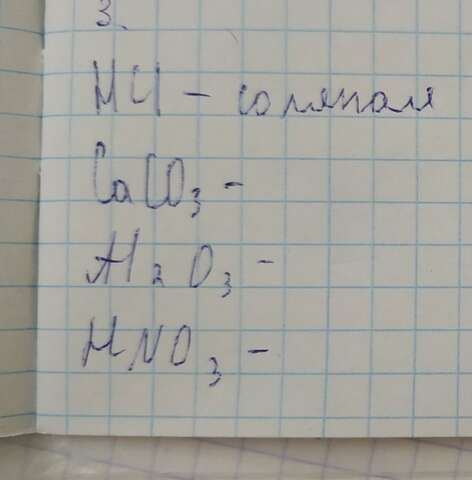 3.
HCl - соляная
CaCO3 -
Al2O3 -
HNO3 -